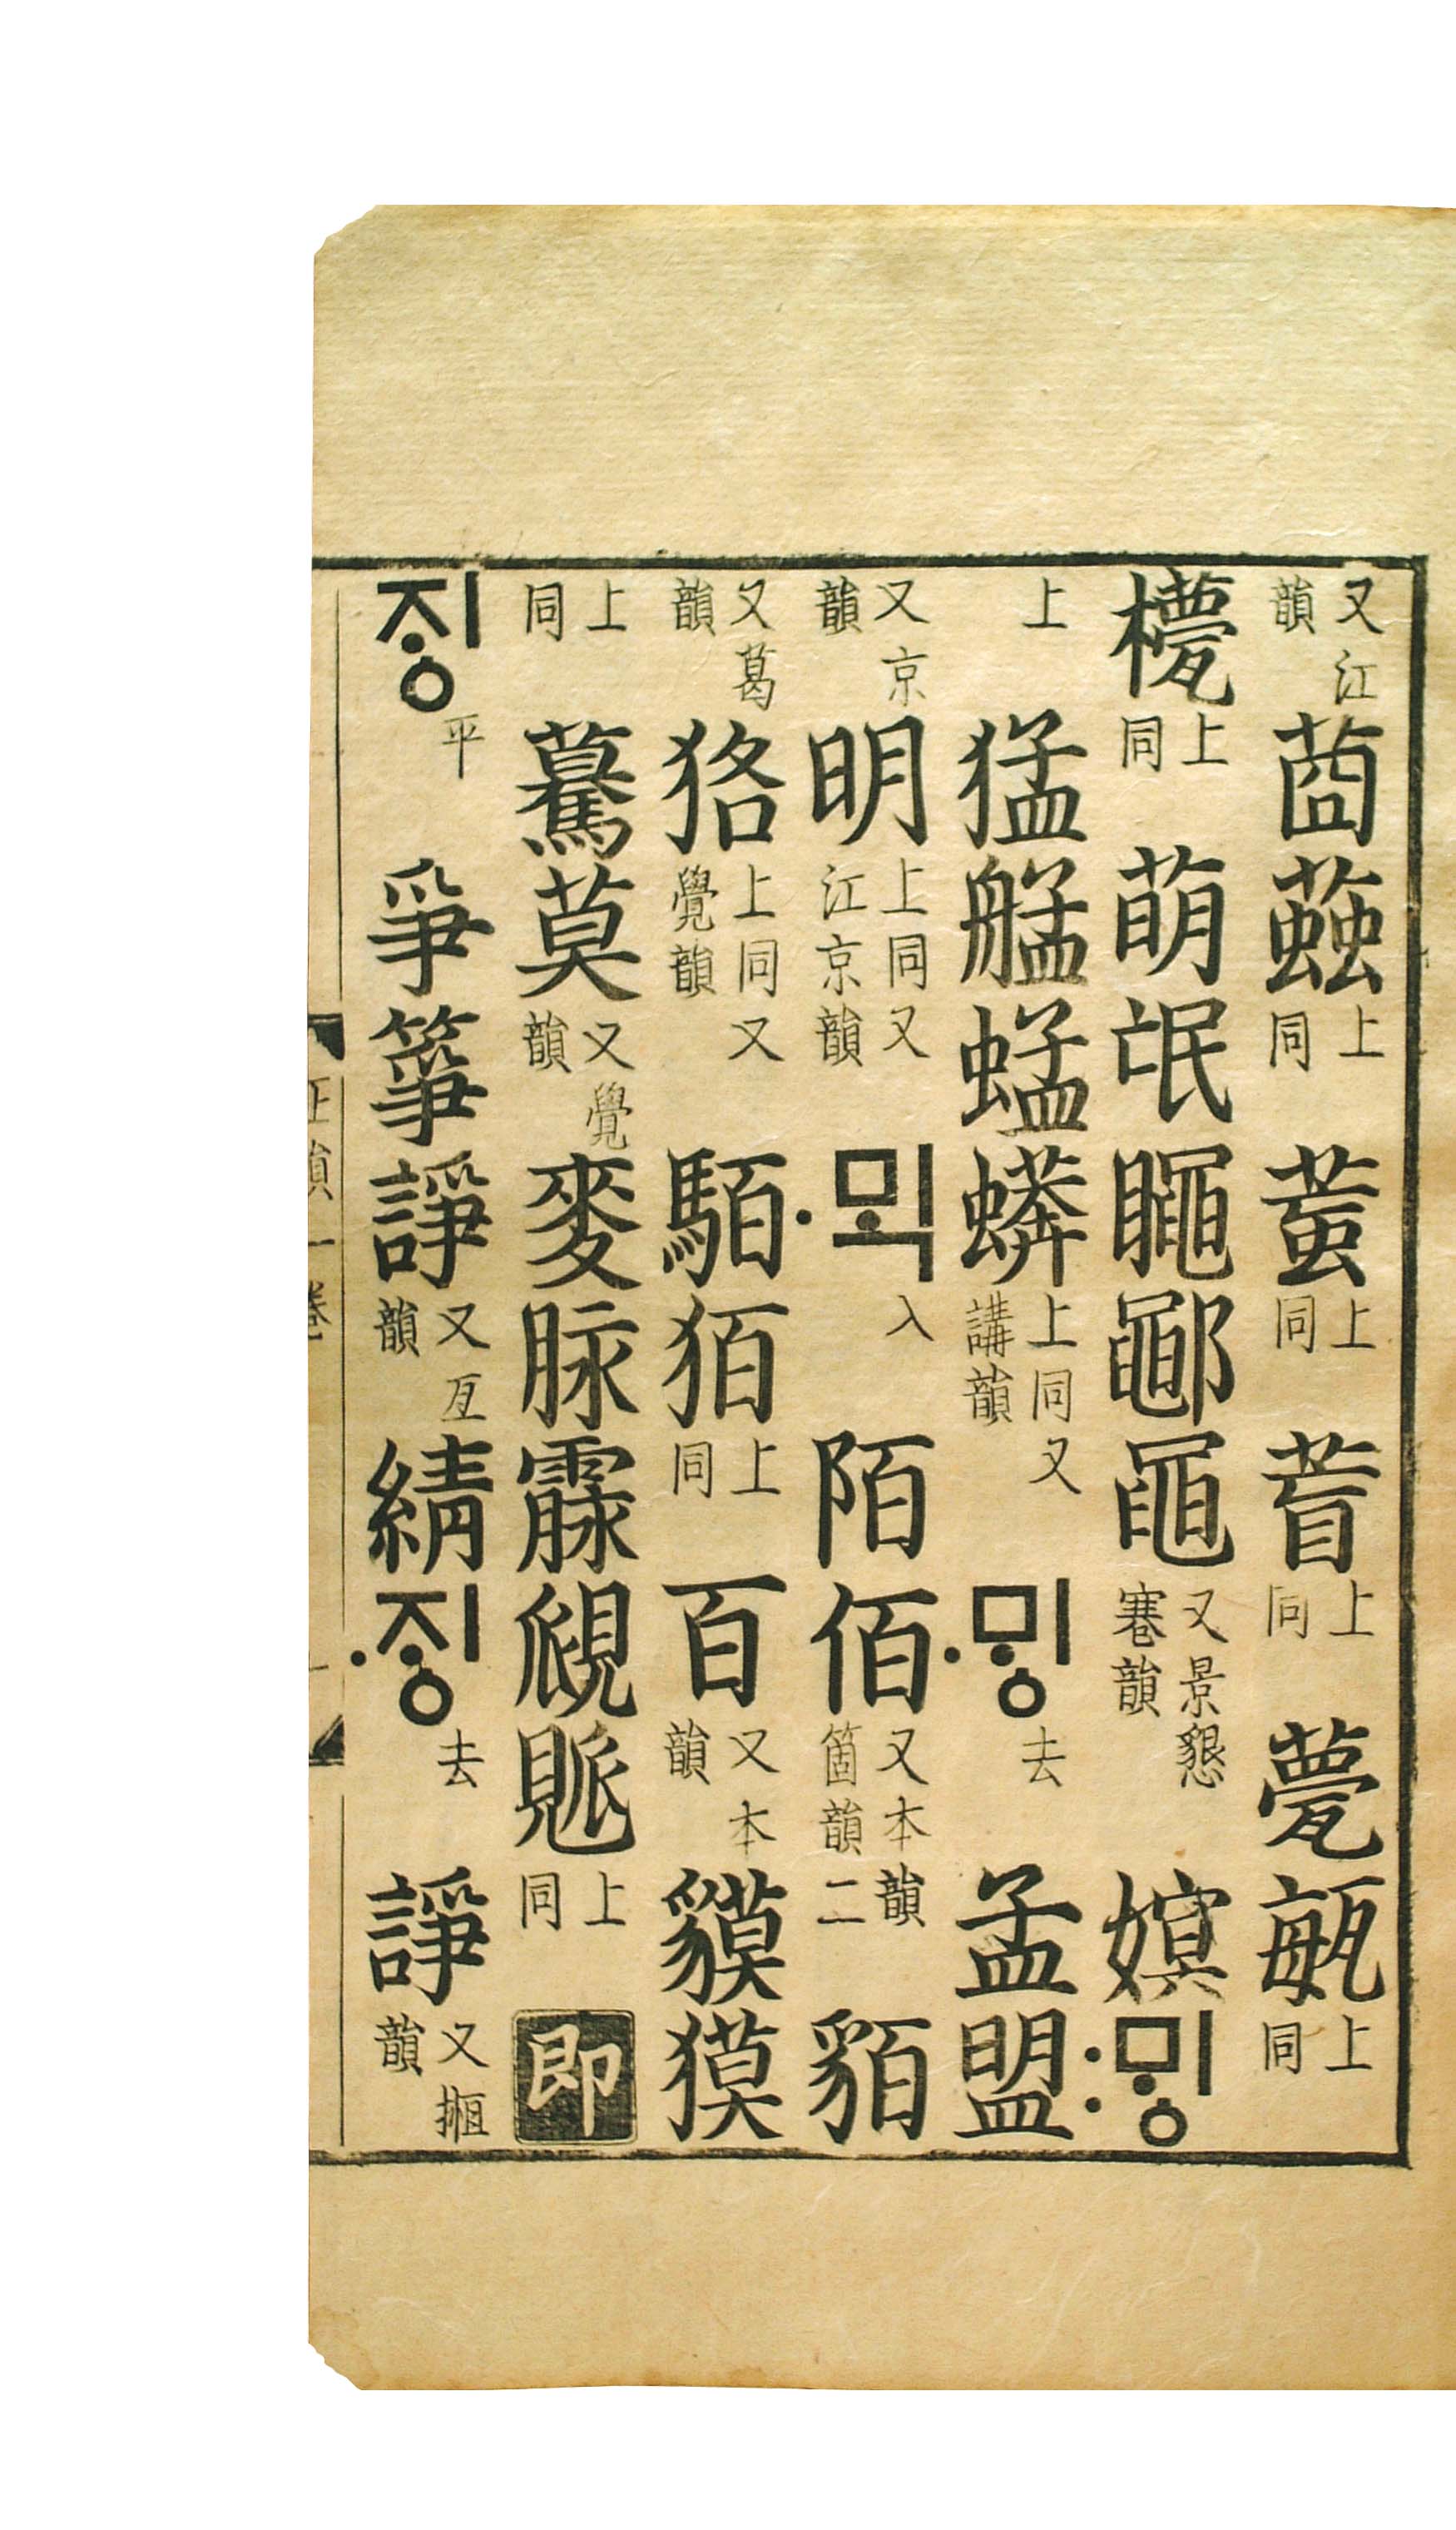 又江韻莔上同上同上同甍㼺上同
上同萌氓鄳黽又景懇韻嫇:ᄆᆡᇰ
上猛艋蜢蠎上同又講韻·ᄆᆡᇰ去孟盟
又京韻明上同又江京韻·ᄆᆡᆨ入陌佰又本韻二箇韻貊
又葛韻狢上同又覺韻上同百又本韻貘獏
上同驀莫又覺韻麥脉霢覛上同即
ᄌᆡᇰ平爭箏諍又亙韻綪·ᄌᆡᇰ去諍又韻